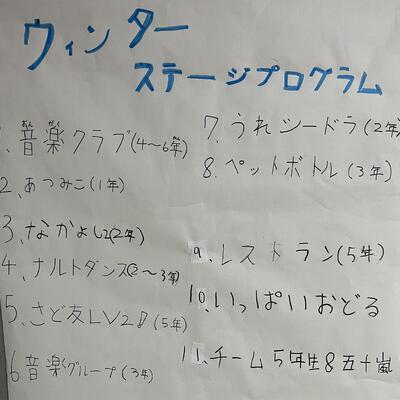 ウィンター
ステージプログラム
1.音楽クラブ(4〜6年)
2.あつみこ(1年)
3.なかよし2(2年)
4.ナルトダンス(2〜3年)
5.さど友LV2♪(5年)
6音楽グループ(3年)
7.うれシードラ(2年)
8.ペットボトル(3年)
9.レストラン(5年)
10.いっぱいおどる
11.チーム5年生&五十嵐